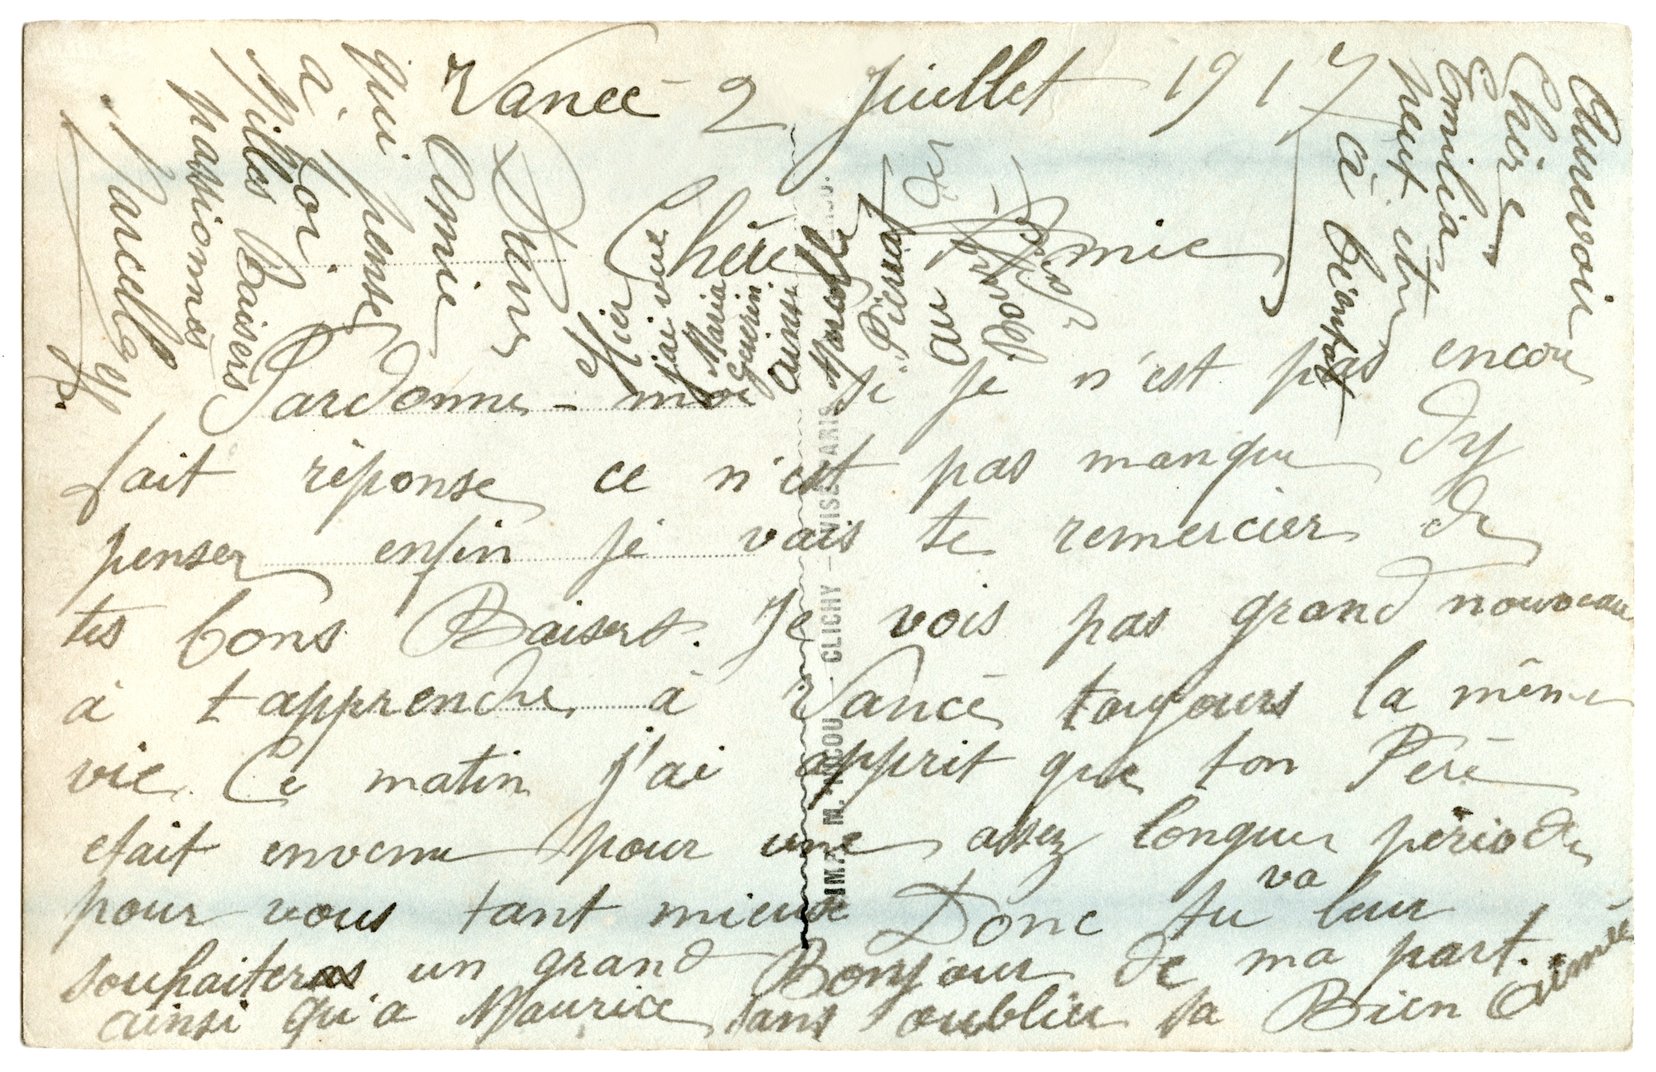 Vancé 2 Juillet 1917
Chère Amie
Pardonne-moi si je n'est pas encore
fait réponse ce n'est pas manque dy
penser enfin je vais te remercier de
tes bons Baisers. Je vois pas grand nouveau
à t'apprendre à Vancé toujours la même
vie. Ce matin j'ai apprit que ton Père
etait envenu pour une assez longue période
pour vous tant mieux Donc tu va leur
souhaiteras un grand Bonjour de ma part.
ainsi qu'a Maurice sans oublier sa Bien Aimée
Hier
j'ai vue
Maria
Guerin
ainsi
Marcelle
Tessier
au
Bourg
Aurevoir
Chère
Emilia
peut etre
à bientot
D'une
Amie
qui pense
à Toi.
Milles Baisers
passionnés
Marcelle
IMP. M. TICOU. CLICHY — VISÉ PARIS